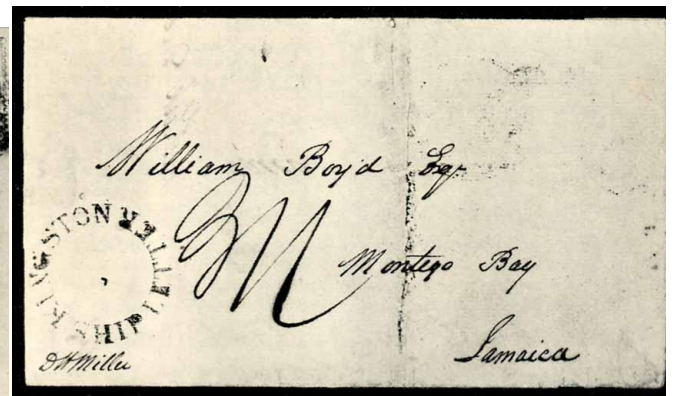 William Boyd Esqr
Montego Bay
Jamaica
KINGSTON SHIP LETTER
D H Miller